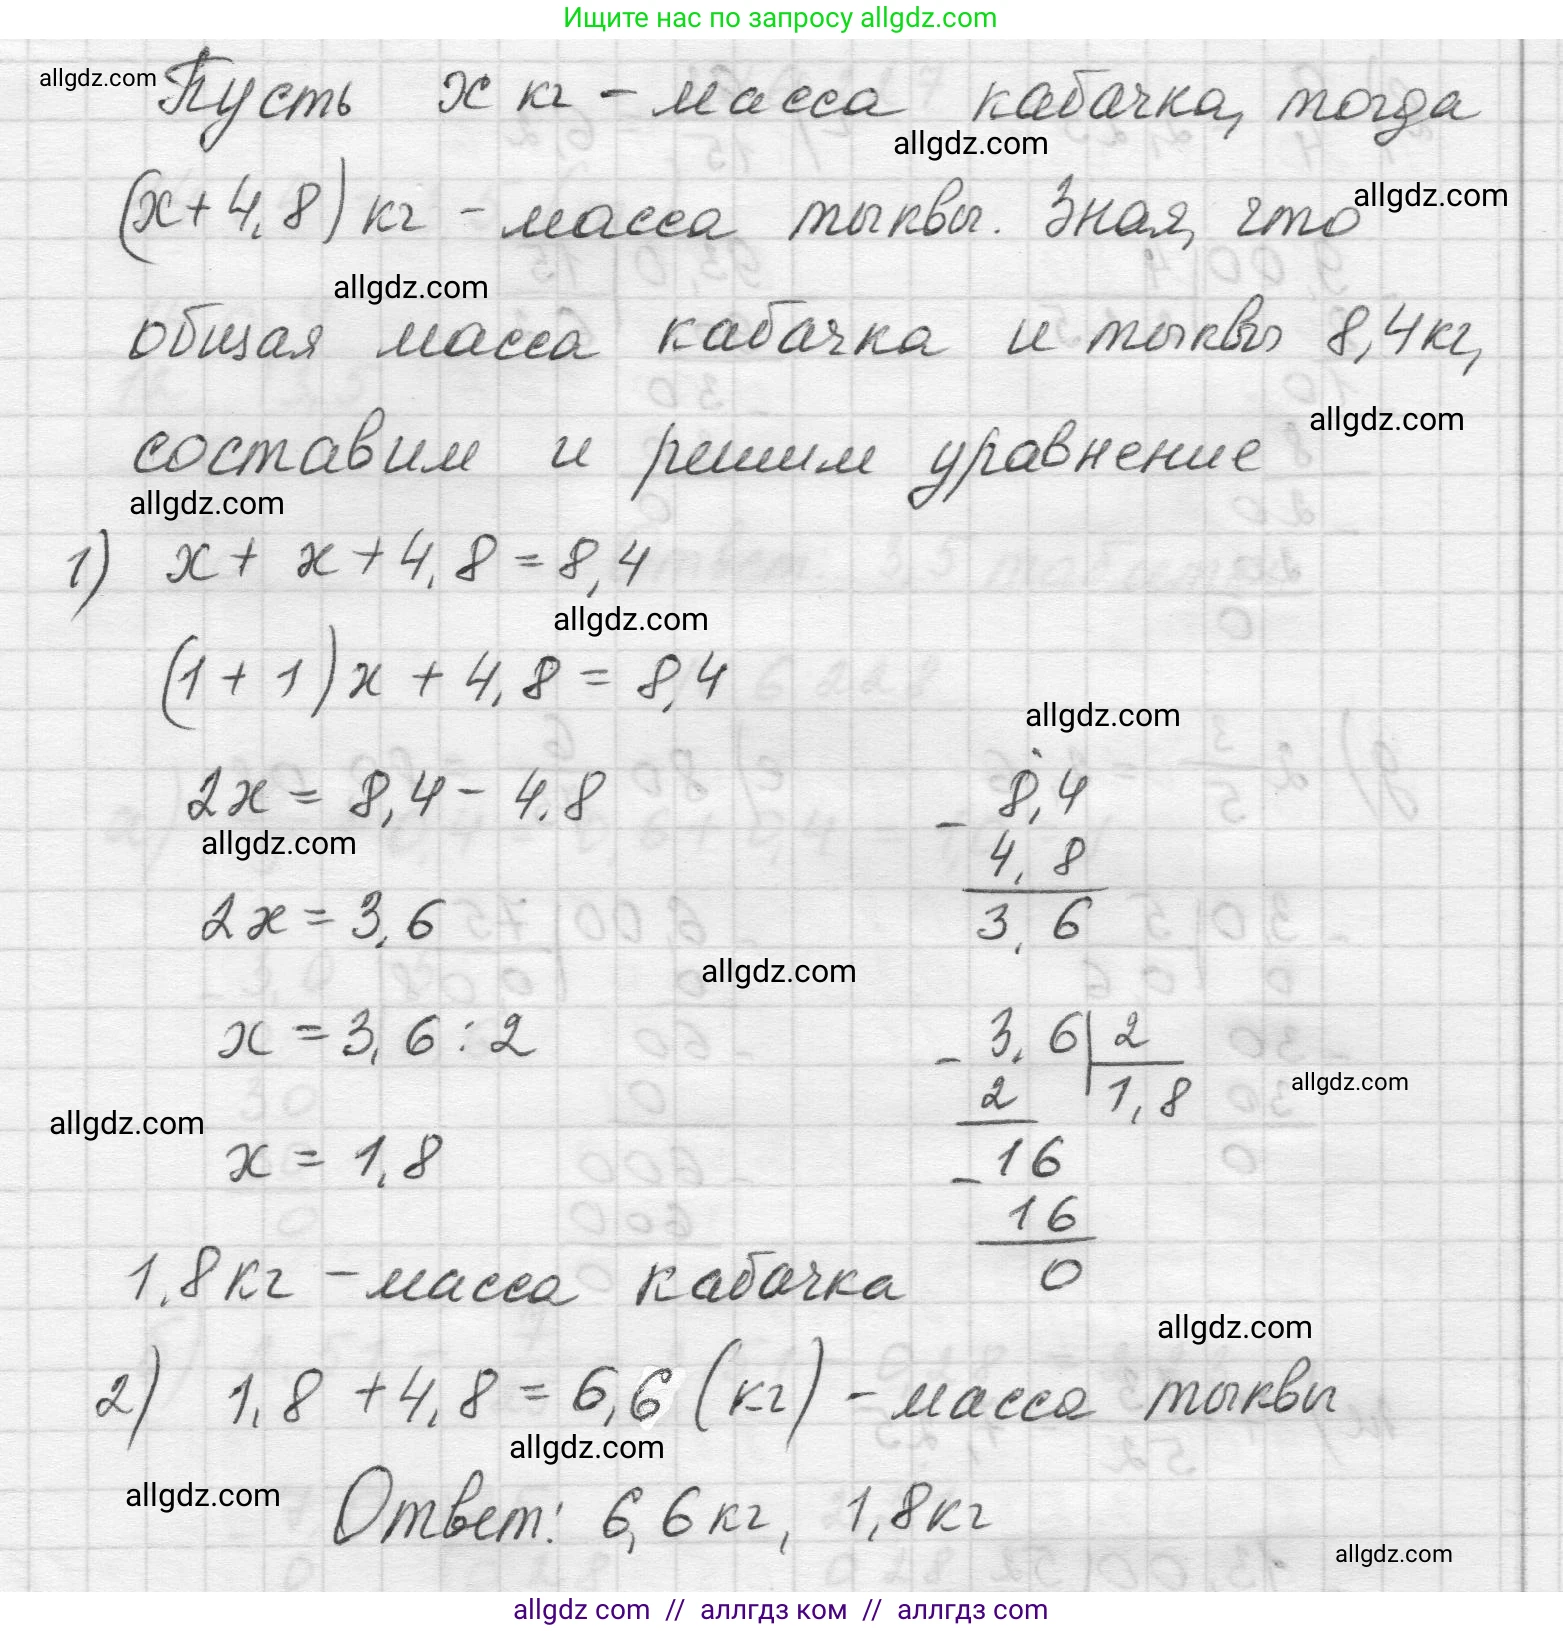 Ищите нас по запросу allgdz.com
allgdz.com
Пусть x кг - масса кабачка, тогда
allgdz.com
(x+4,8) кг - масса тыквы. Зная, что
allgdz.com
allgdz.com
общая масса кабачка и тыквы 8,4кг,
allgdz.com
составим и решим уравнение
allgdz.com
1) x + x + 4,8 = 8,4
allgdz.com
(1 + 1) x + 4,8 = 8,4
allgdz.com
2x = 8,4 - 4,8
allgdz.com
2x = 3,6
allgdz.com
x = 3,6 : 2
allgdz.com
x = 1,8
- 8,4
4,8
3,6
- 3,6 | 2
2 1,8
allgdz.com
- 16
16
0
1,8 кг - масса кабачка
allgdz.com
2) 1,8 + 4,8 = 6,6 (кг) - масса тыквы
allgdz.com
allgdz.com
Ответ: 6,6 кг, 1,8 кг
allgdz.com
allgdz com // аллгдз ком // аллгдз com